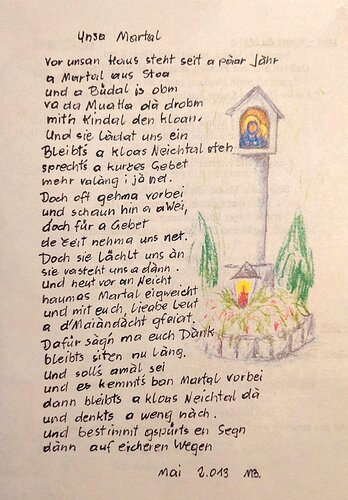 Unsa Martal
Vor unsan Haus steht seit a pààr Jàhr
a Martal aus Stoa
und a Büdal is obm
va da Muatta dà drobm
mitn Kindal den kloan.
Und sie làdat uns ein
Bleibts a kloas Neichtal steh
sprechts a kurzes Gebet
mehr valàng i jà net.
Doch oft gehma vorbei
und schaun hin a wei,
doch für a Gebet
de Zeit nehma uns net.
Doch sie làchlt uns àn
sie vasteht uns a dànn.
und heut vor an Neicht
haumas Martal eigweicht
und mit euch, liabe Leut
a d'Maiàndàcht gfeiat.
Dafür sàgn ma euch Dànk
bleibts sitzn nu làng.
Und solls amàl sei
und es kemmts ban Martal vorbei
dann bleibts a kloas Neichtal dà
und denkts a weng nàch.
und bestimmt gspürts en Segn
dànn auf eicheren Wegen
Mai 2.013 MB.